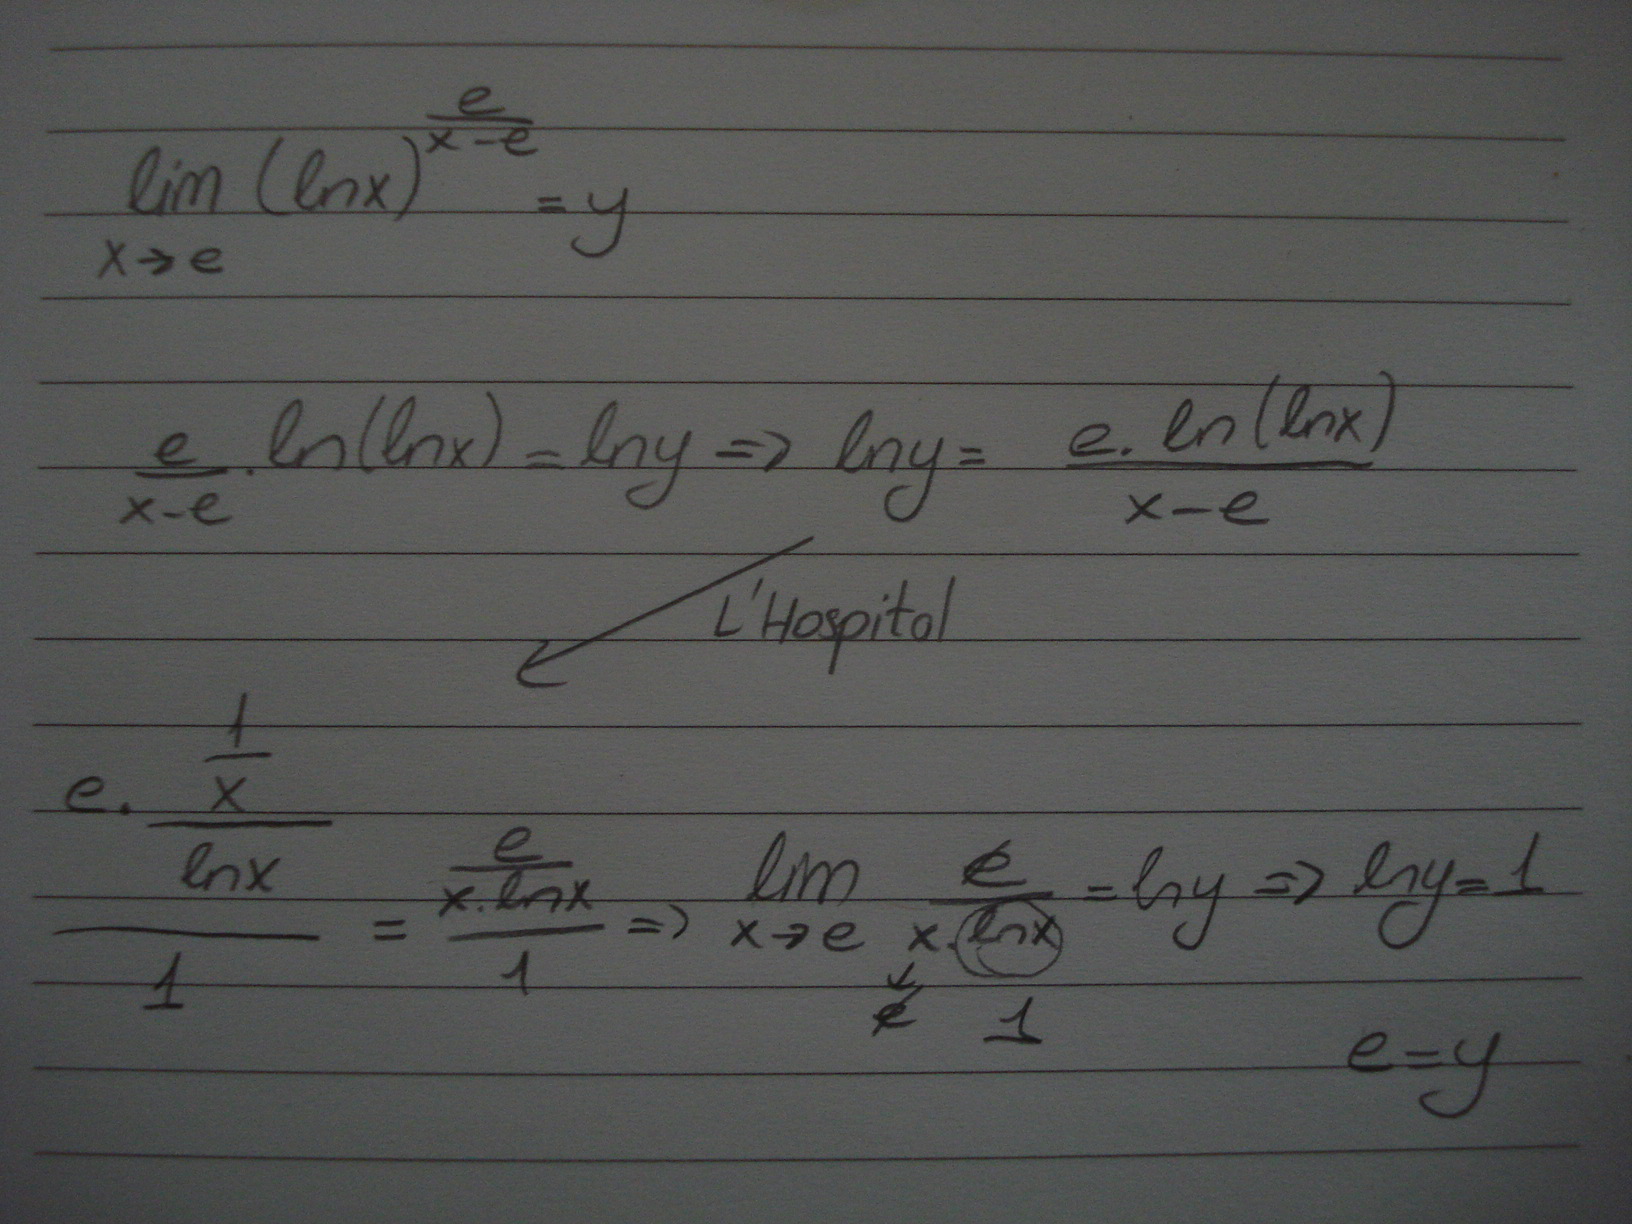 lim (lnx)^(e/(x-e)) = y
x→e
e/(x-e) . ln(lnx) = lny => lny = e. ln(lnx)/(x-e)
L'Hospital
e. ((1/x)/lnx)/1 = (e/(x.lnx))/1 => lim x→e e/(x.lnx) = lny => lny = 1
e 1
e = y